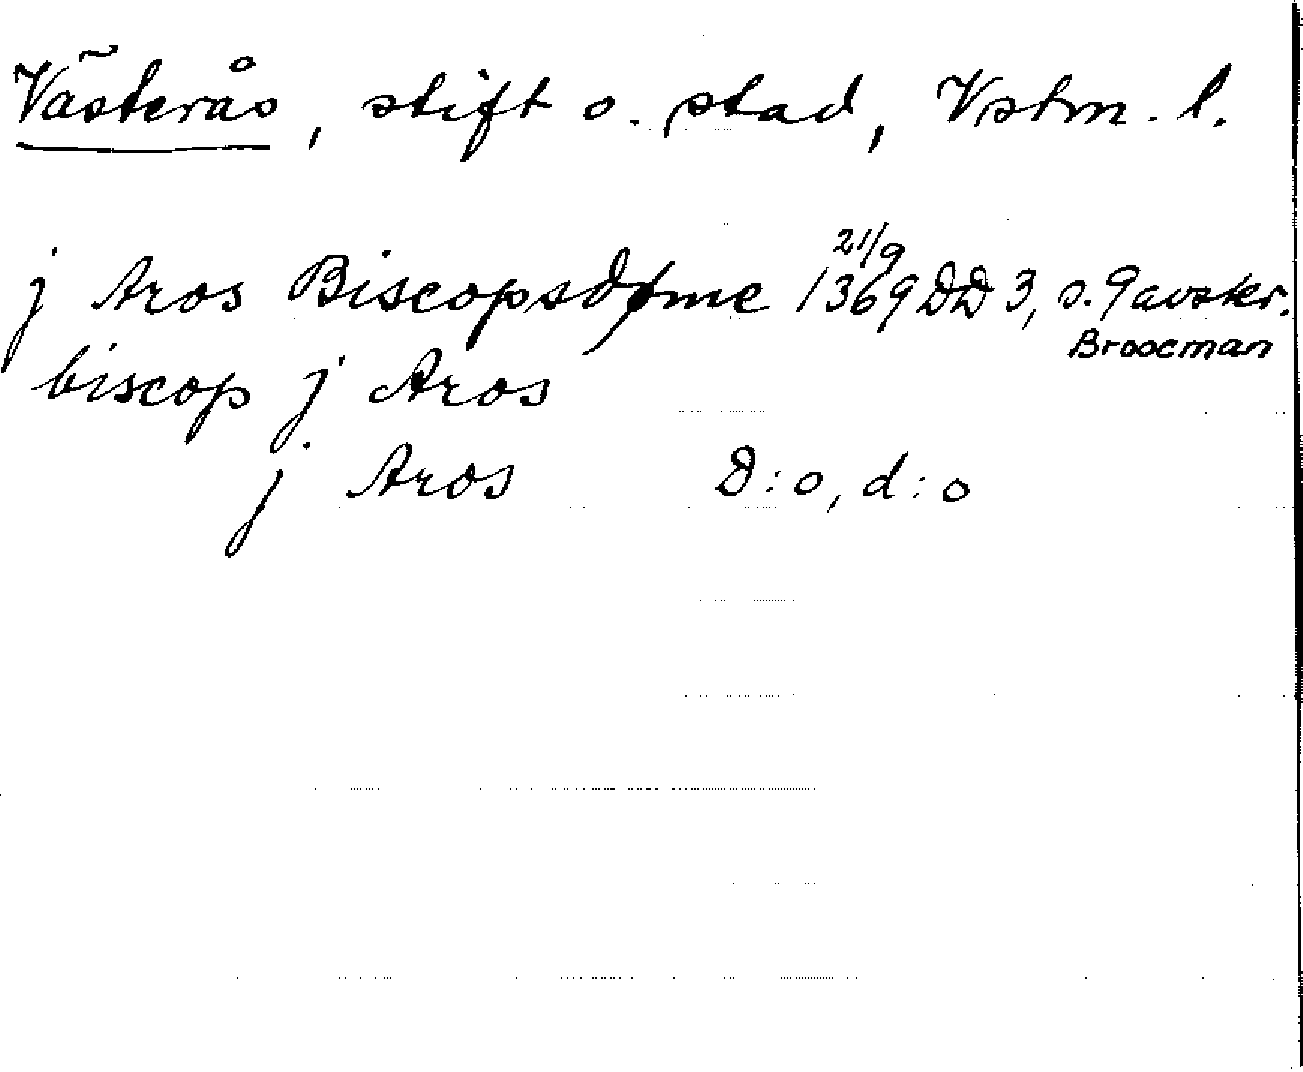 Västerås, stift o. stad, Vstm. l.
j Aros Biscopsdøme 21/9 1369 DD 3, s. 9 avskr.
Broocman
biscop j Aros
j Aros D:o, d:o